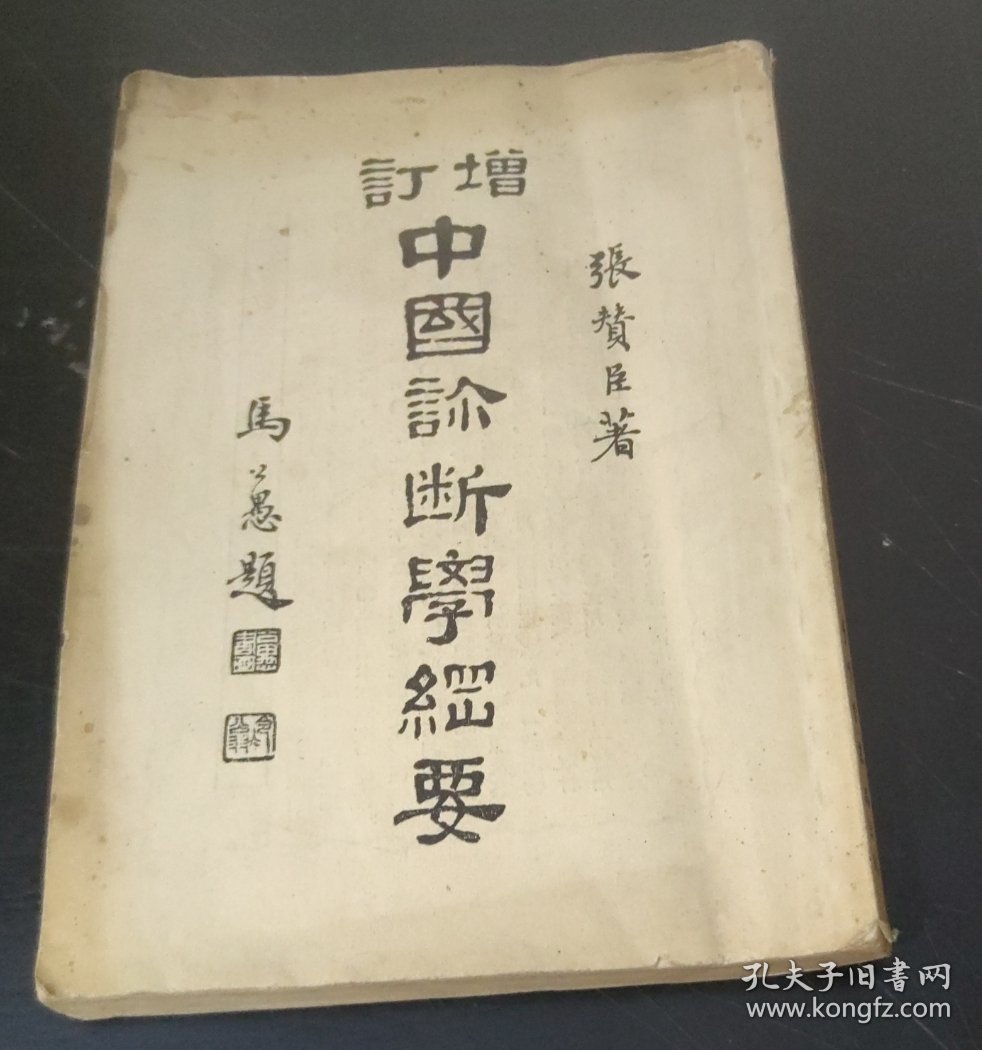 張贊臣著
增訂
中國診斷學綱要
馬公愚題
孔夫子旧书网
www.kongfz.com